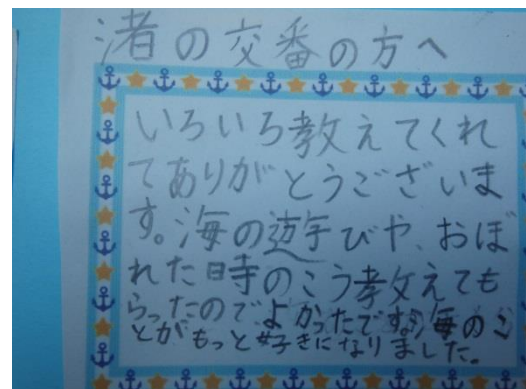 渚の交番の方へ
いろいろ教えてくれ
てありがとうございま
す。海の遊びや、おぼ
れた時のこう教えても
らったのでよかったです。海のこ
とがもっと好きになりました。